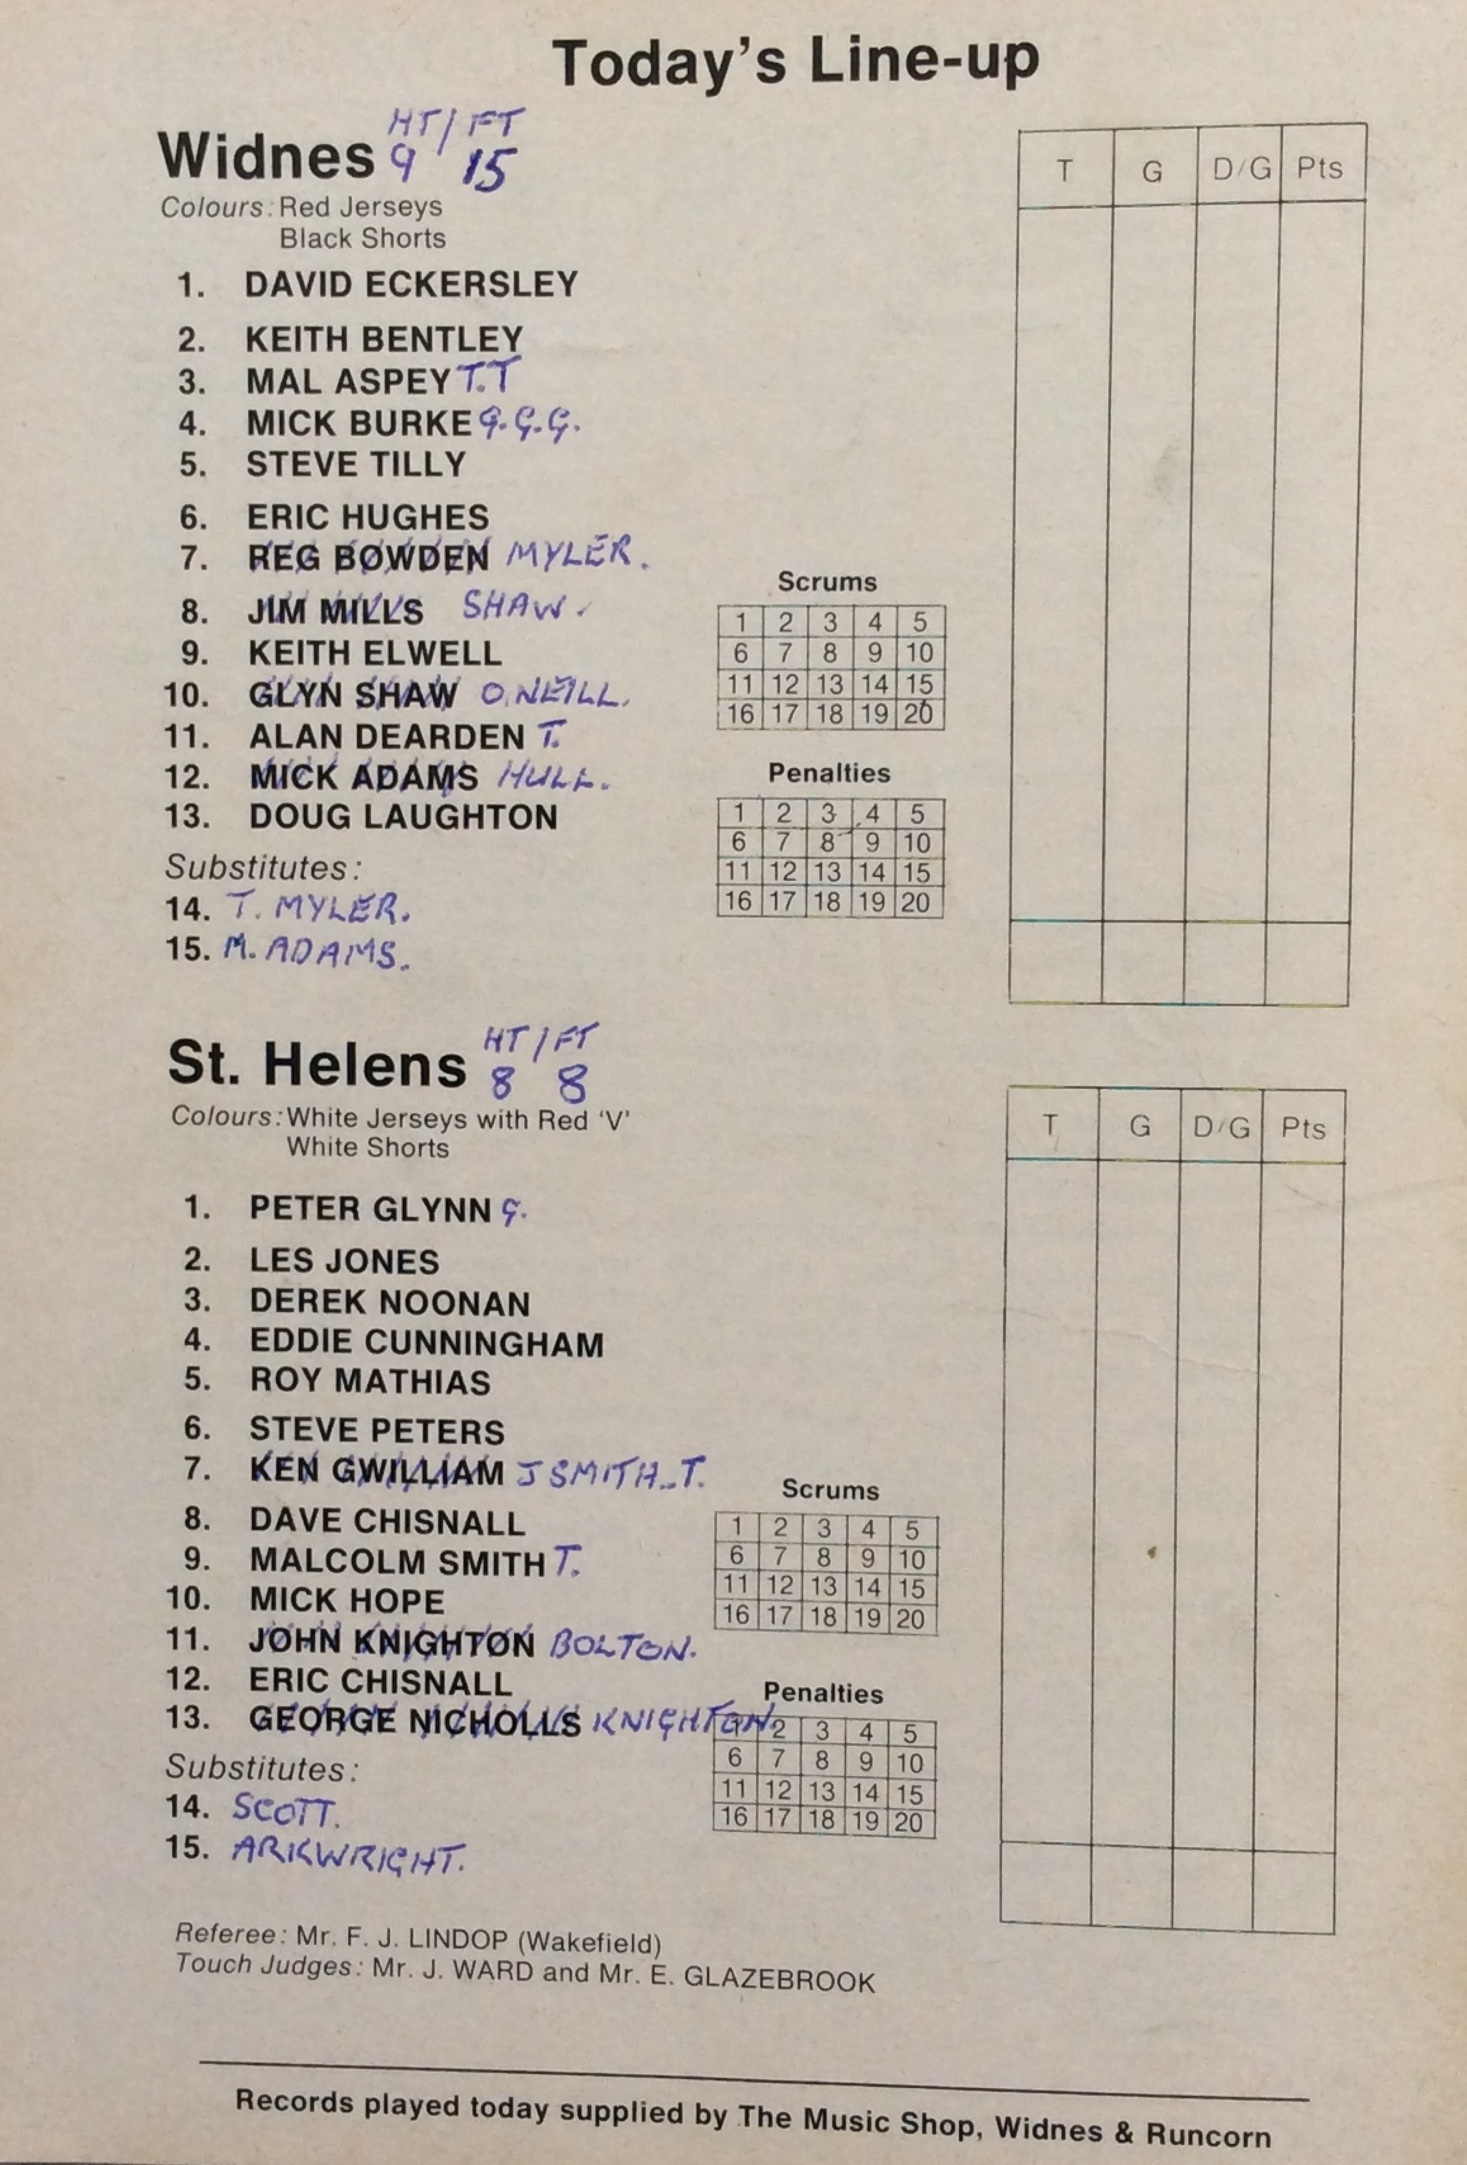 Today's Line-up
HT/FT
Widnes 9 15
Colours: Red Jerseys
Black Shorts
T G D/G Pts
1. DAVID ECKERSLEY
2. KEITH BENTLEY
3. MAL ASPEY T.T
4. MICK BURKE G.G.G.
5. STEVE TILLY
6. ERIC HUGHES
7. REG BOWDEN MYLER.
8. JIM MILLS SHAW.
9. KEITH ELWELL
10. GLYN SHAW O.NEILL.
11. ALAN DEARDEN T.
12. MICK ADAMS HULL.
13. DOUG LAUGHTON
Substitutes:
14. T. MYLER.
15. M. ADAMS.
Scrums
1 2 3 4 5
6 7 8 9 10
11 12 13 14 15
16 17 18 19 20
Penalties
1 2 3 4 5
6 7 8 9 10
11 12 13 14 15
16 17 18 19 20
HT/FT
St. Helens 8 8
Colours: White Jerseys with Red 'V'
White Shorts
T G D/G Pts
1. PETER GLYNN G.
2. LES JONES
3. DEREK NOONAN
4. EDDIE CUNNINGHAM
5. ROY MATHIAS
6. STEVE PETERS
7. KEN GWILLIAM J SMITH..T.
8. DAVE CHISNALL
9. MALCOLM SMITH T.
10. MICK HOPE
11. JOHN KNIGHTON BOLTON.
12. ERIC CHISNALL
13. GEORGE NICHOLLS KNIGHTON.
Substitutes:
14. SCOTT.
15. ARKWRIGHT.
Scrums
1 2 3 4 5
6 7 8 9 10
11 12 13 14 15
16 17 18 19 20
Penalties
1 2 3 4 5
6 7 8 9 10
11 12 13 14 15
16 17 18 19 20
Referee: Mr. F. J. LINDOP (Wakefield)
Touch Judges: Mr. J. WARD and Mr. E. GLAZEBROOK
Records played today supplied by The Music Shop, Widnes & Runcorn